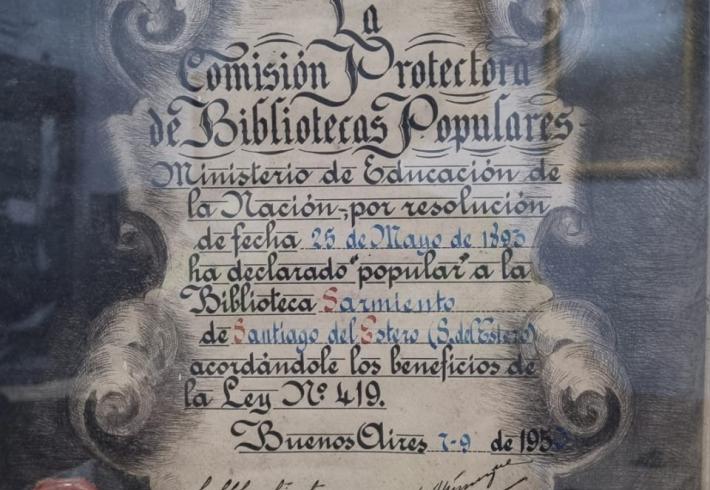 La
Comisión Protectora
de Bibliotecas Populares
Ministerio de Educación de
la Nación, por resolución
de fecha 25 de Mayo de 1893
ha declarado "popular" a la
Biblioteca Sarmiento
de Santiago del Estero (S. del Estero)
acordándole los beneficios de
la Ley Nº 419.
Buenos Aires 7-9 de